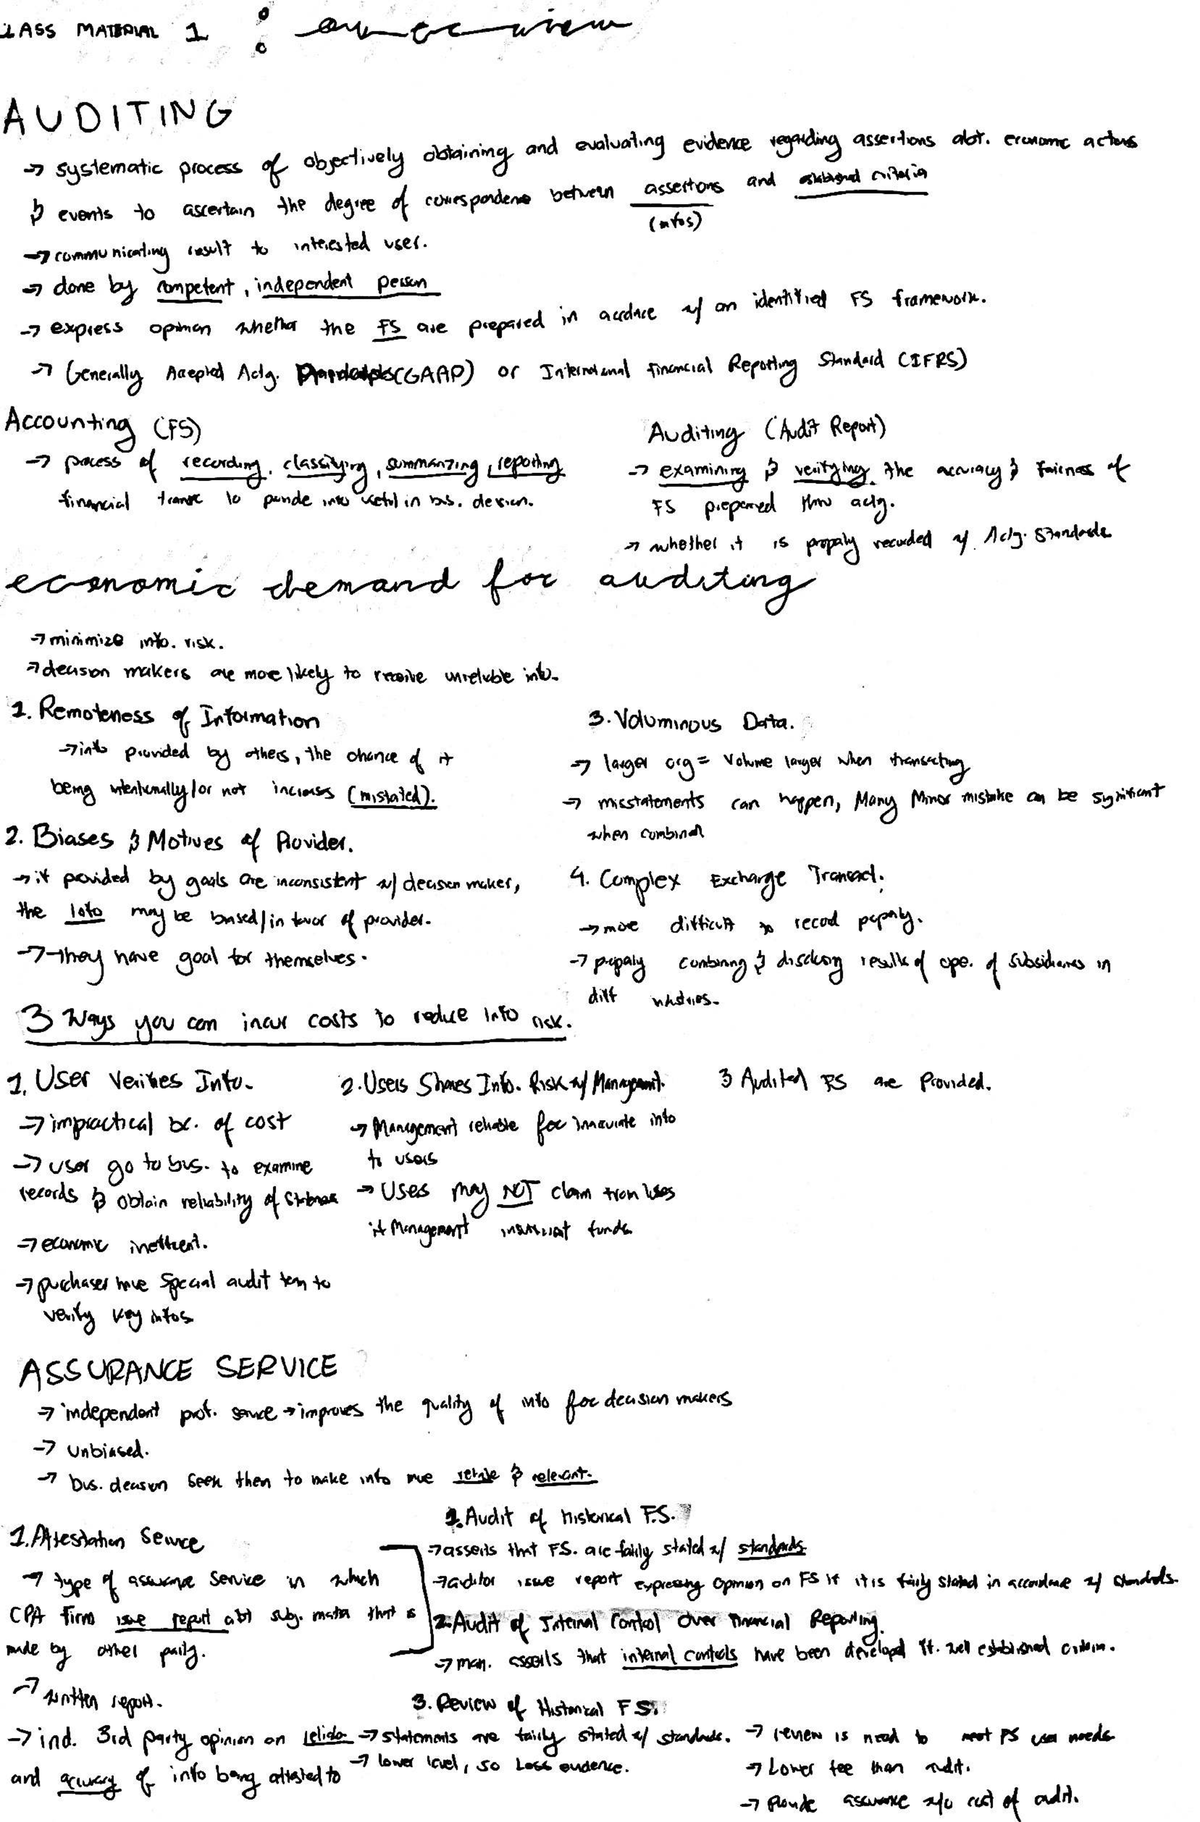 CLASS MATERIAL 1 : overview
AUDITING
→ systematic process of objectively obtaining and evaluating evidence regarding assertions abt. economic actions
& events to ascertain the degree of correspondence between assertions and established criteria
(infos)
→ communicating result to interested user.
→ done by competent, independent person
→ express opinion whether the FS are prepared in accdnce w/ an identified FS framework.
→ Generally Accepted Actg. (GAAP) or International Financial Reporting Standard (IFRS)
Accounting (FS)
→ process of recording, classifying, summarizing, reporting
financial transc to provide info useful in bus. decision.
Auditing (Audit Report)
→ examining & verifying the accuracy & fairness of
FS prepared thru actg.
→ whether it is properly recorded w/ Actg. Standards
economic demand for auditing
→ minimize info. risk.
→ decision makers are more likely to receive unreliable info.
1. Remoteness of Information
→ info provided by others, the chance of it
being intentionally/or not increases (mistated).
2. Biases & Motives of Provider.
→ if provided by goals are inconsistent w/ decision maker,
the info may be biased/in favor of provider.
→ They have goal for themselves.
3. Voluminous Data.
→ larger org = volume larger when transacting
→ misstatements can happen, Many Minor mistake can be significant
when combined
4. Complex Exchange Transact.
→ more difficult to record properly.
→ properly combining & disclosing results of ope. of subsidiaries in
diff industries.
3 Ways you can incur costs to reduce info risk.
1. User Verifies Info.
→ impractical bc. of cost
→ user go to bus. to examine
records & obtain reliability of
→ economic inefficient.
→ purchaser have special audit team to
verify key infos
2. Users Shares Info. Risk w/ Management.
→ Management reliable for innacurate info
to users
→ Users may NOT claim from
if Management insufficient funds
3 Audited FS are Provided.
ASSURANCE SERVICE
→ independent prof. service → improves the quality of info for decision makers
→ unbiased.
→ bus. decision seek them to make info more reliable & relevant.
1. Attestation Service
→ type of assurance service in which
CPA Firm issue report abt subj. matter that is
made by other party.
→ written report.
→ ind. 3rd party opinion on
and accuracy of info being attested to
1. Audit of Historical F.S.
→ asserts that FS. are fairly stated w/ standards
→ auditor issue report expressing opinion on FS if it is fairly stated in accordance w/ standards.
2. Audit of Internal Control Over Financial Reporting.
→ man. asserts that internal controls have been developed ff. well established criteria.
3. Review of Historical FS.
→ statements are fairly stated w/ standards.
→ lower level, so Less evidence.
→ review is need to meet FS user needs
→ Lower fee than audit.
→ Provide assurance w/o cost of audit.